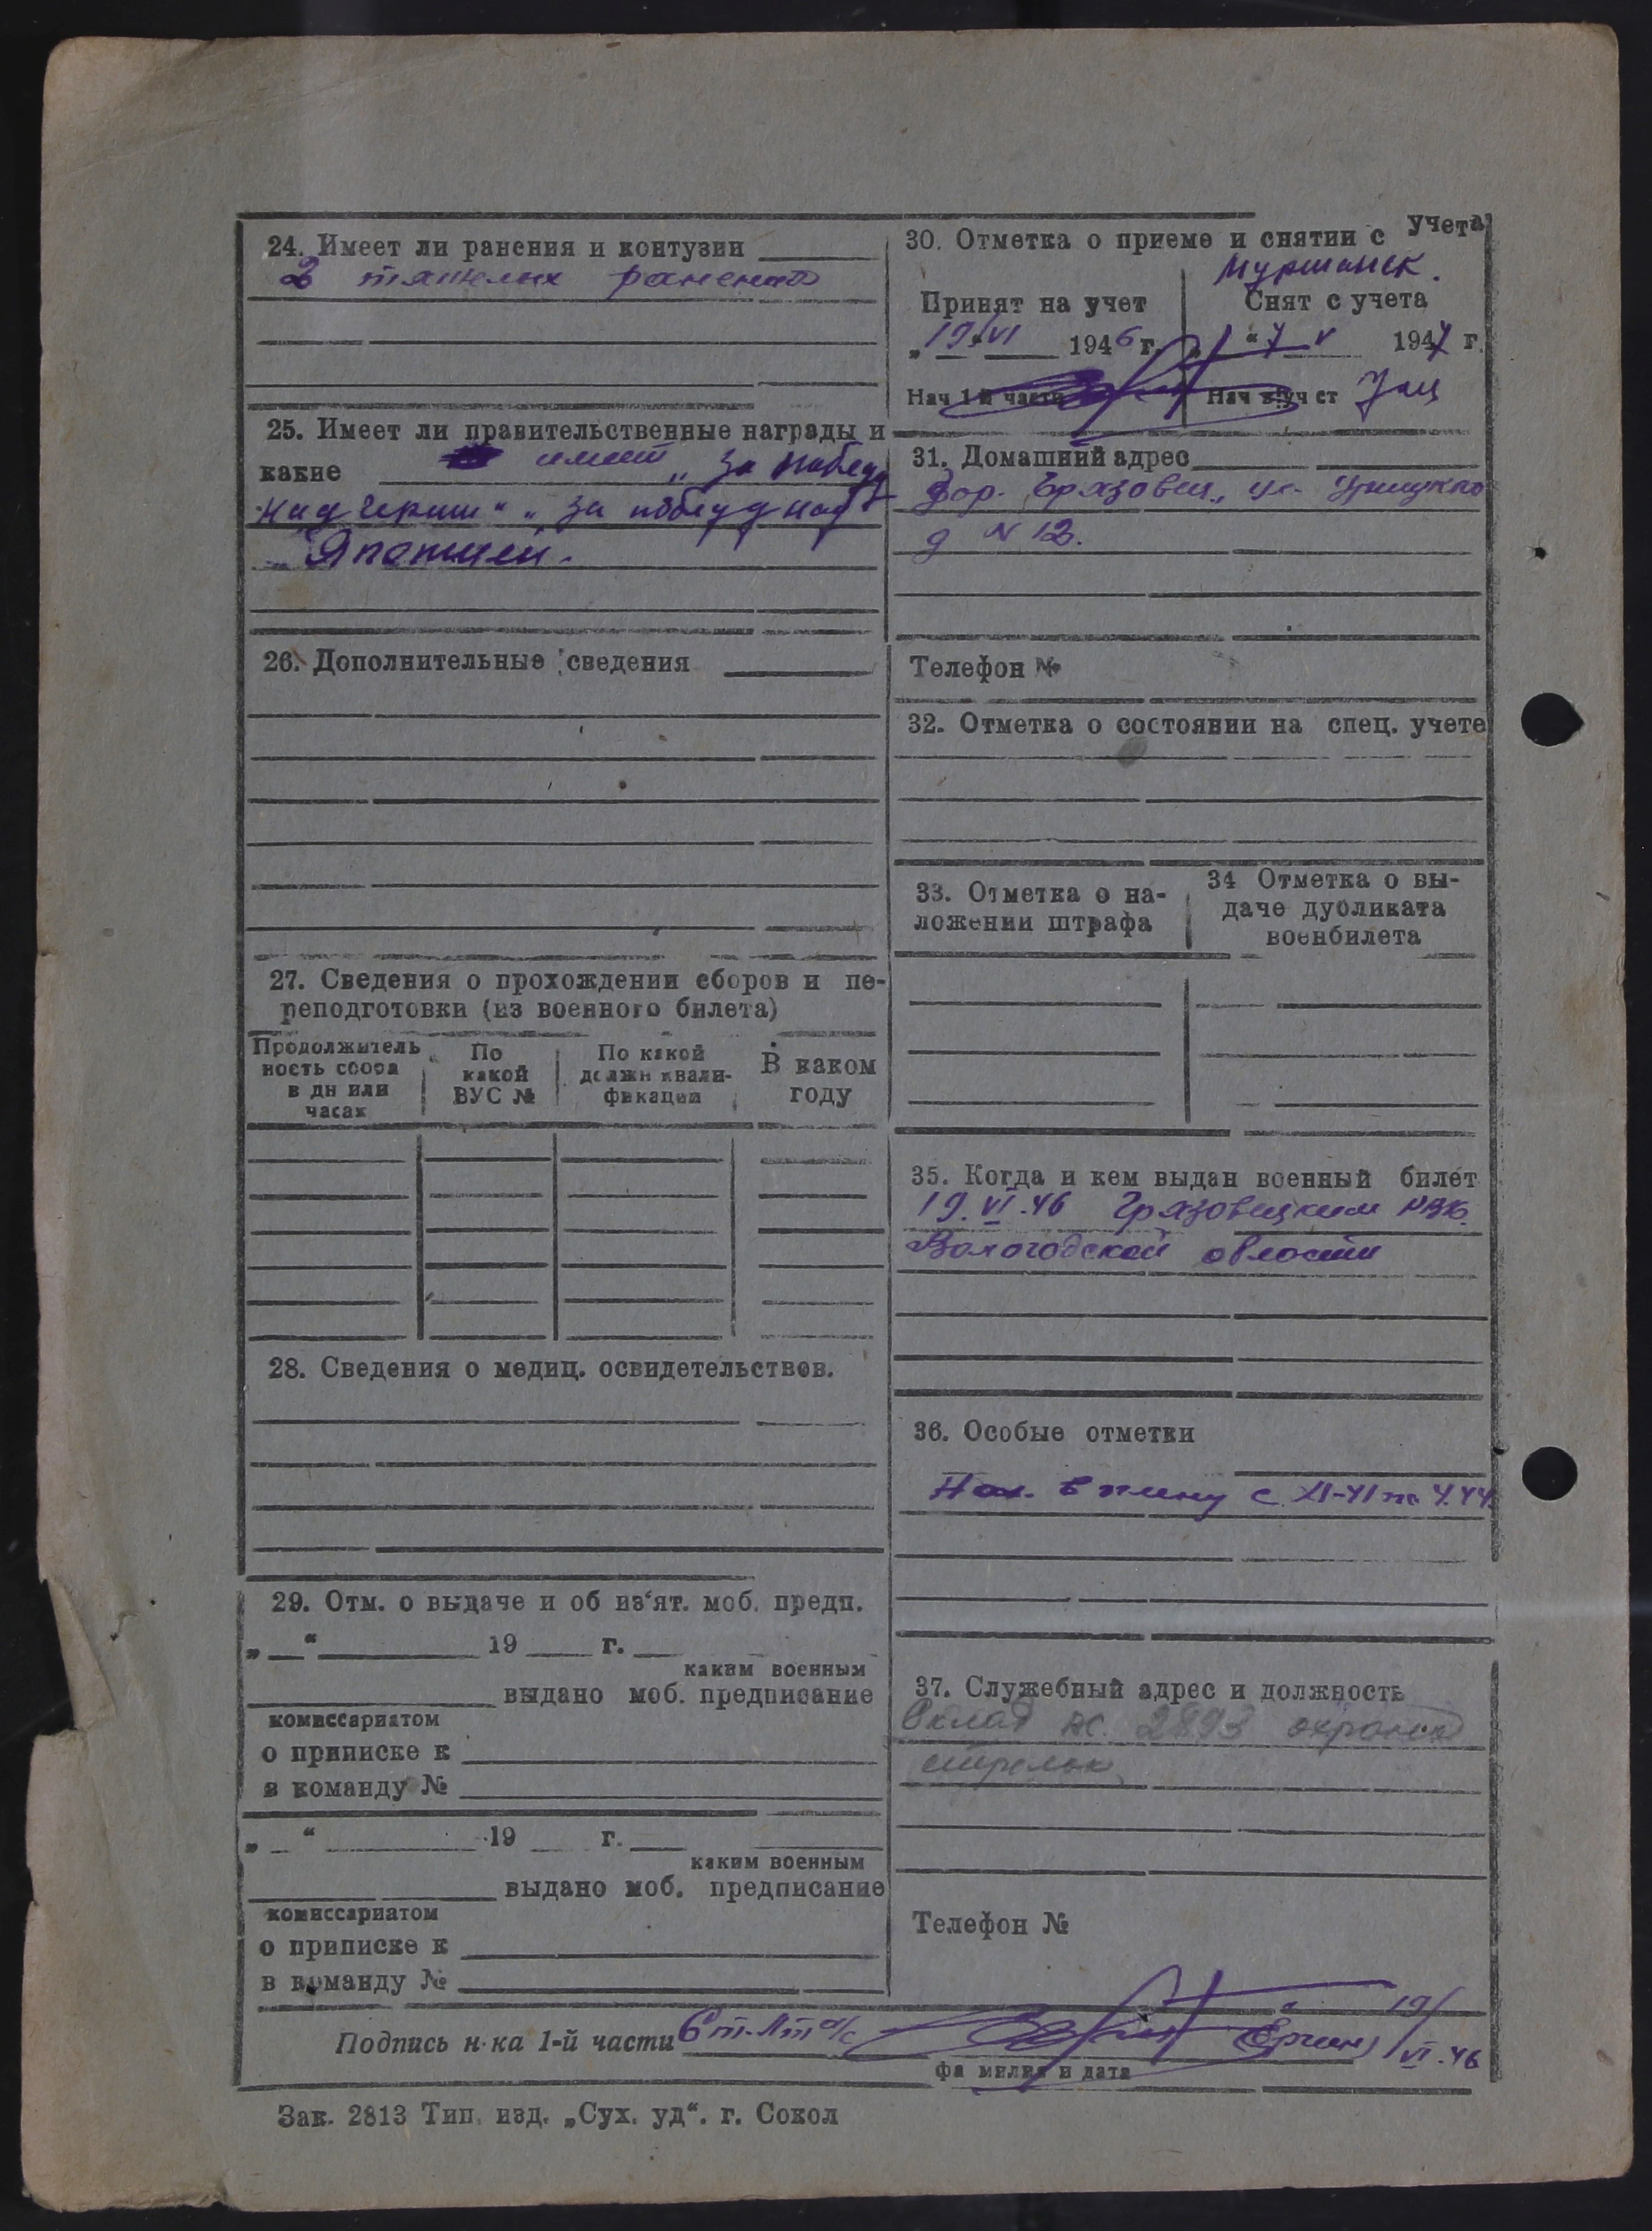 24. Имеет ли ранения и контузии
2 тяжелых ранения
25. Имеет ли правительственные награды и
какие имеет „За победу
над Герман“ „за победу над
Японией.
26. Дополнительные сведения
27. Сведения о прохождении сборов и пе-
реподготовки (из военного билета)
Продолжитель
ность сбора
в дн или
часах
По
какой
ВУС №
По какой
должн квали-
фикации
В каком
году
28. Сведения о медиц. освидетельствов.
29. Отм. о выдаче и об из‘ят. моб. предп.
„ “ 19 г.
каким военным
выдано моб. предписание
комиссариатом
о приписке к
в команду №
„ “ 19 г.
каким военным
выдано моб. предписание
комиссариатом
о приписке к
в команду №
30. Отметка о приеме и снятии с учета
Мурманск.
Принят на учет
Снят с учета
„19“ VI 1946 г.
„ “ 7 V 1947 г.
Нач 1-й части
Нач в.уч ст
31. Домашний адрес
гор. Грязовец, ул. Урицкого
д N 12.
Телефон №
32. Отметка о состоянии на спец. учете
33. Отметка о на-
ложении штрафа
34 Отметка о вы-
даче дубликата
военбилета
35. Когда и кем выдан военный билет
19.VI.46 Грязовецким РВК.
Вологодской области
36. Особые отметки
Нах. в плену с XI-41 по 4.44
37. Служебный адрес и должность
Склад 2893 охрана
стрелок
Телефон №
Подпись н-ка 1-й части Ст. Лт а/с 19/VI.46
фамилия и дата
Зак. 2813 Тип. изд. „Сух. уд“. г. Сокол